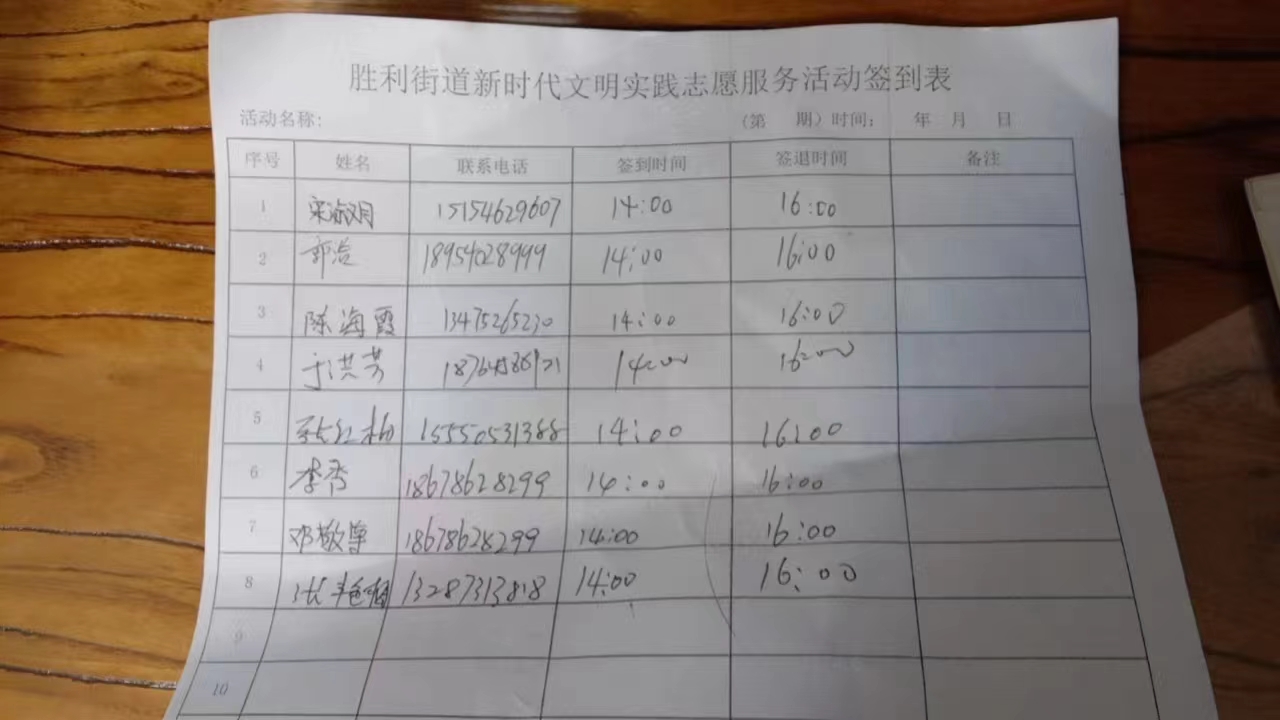 胜利街道新时代文明实践志愿服务活动签到表
活动名称: (第 期) 时间: 年 月 日
序号 姓名 联系电话 签到时间 签退时间 备注
1 15154629607 14:00 16:00
2 郭浩 18954028999 14:00 16:00
3 陈海霞 13475265230 14:00 16:00
4 于洪芳 14:00 16:00
5 张红梅 15550531388 14:00 16:00
6 李秀 18678628299 14:00 16:00
7 邓敬尊 18678628299 14:00 16:00
8 13287313818 14:00 16:00
9
10